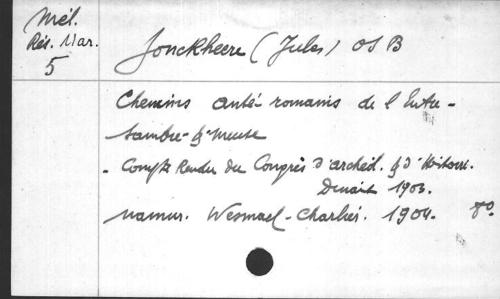 Mél.
Rés. Mar.
5
Jonckheere (Jules) OSB
Chemins anté romains de l'Entre-
Sambre-&-Meuse
- Compte Rendu du Congrès d'archéol. & d'histoire.
Dinant 1903.
Namur. Wesmael-Charlier. 1904. 8°.